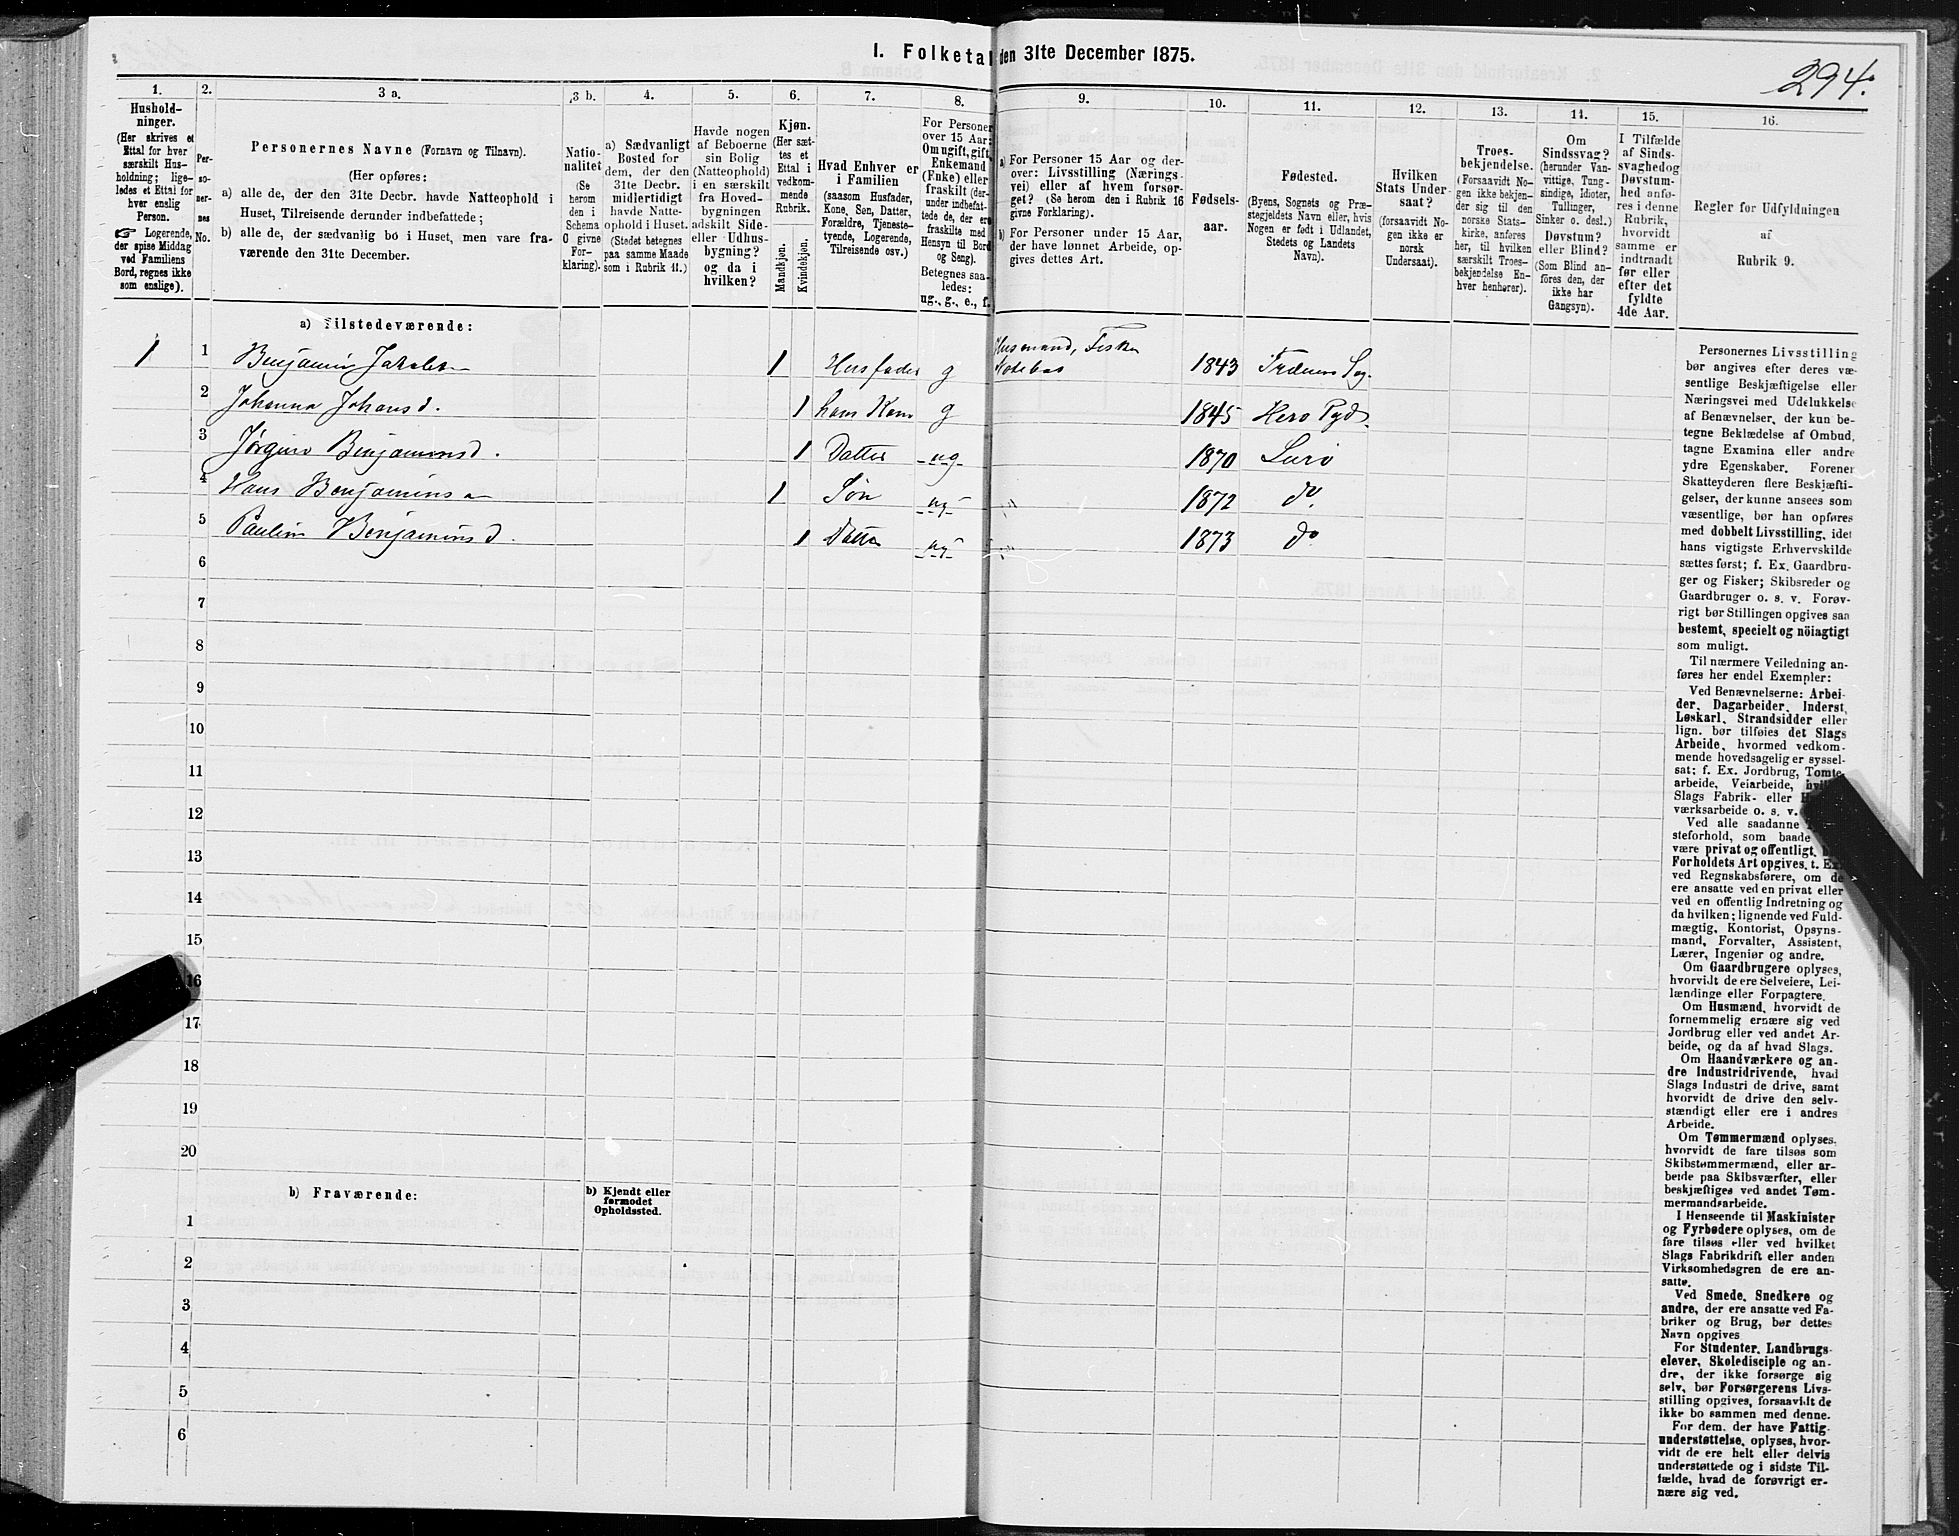 I. Folketal den 31te December 1875.
294.
1.
Hushold-
ninger.
(Her skrives et
Ettal for hver
særskilt Hus-
holdning; lige-
ledes et Ettal for
hver enslig
Person.
☞ Logerende,
der spise Middag
ved Familiens
Bord, regnes ikke
som enslige).
2.
Per-
so-
ner-
nes
No.
3 a.
Personernes Navne (Fornavn og Tilnavn).
(Her opføres:
a) alle de, der den 31te Decbr. havde Natteophold i
Huset, Tilreisende derunder indbefattede;
b) alle de, der sædvanlig bo i Huset, men vare fra-
værende den 31te December.
3 b.
Natio-
nalitet
(Se
herom
den i
Schema
C givne
For-
klaring).
4.
a) Sædvanligt
Bosted for
dem, der den
31te Decbr.
midiertidigt
havde Natte-
ophold i Huset.
(Stedet betegnes
paa samme Maade
som i Rubrik 11.)
5.
Havde nogen
af Beboerne
sin Bolig
(Natteophold)
i en særskilt
fra Hoved-
bygningen
adskilt Side-
eller Udhus-
bygning?
og da i
hvilken?
6.
Kjøn.
(Her sæt-
tes et
Ettal i
vedkom-
mende
Rubrik.
Mandkjøn.
Kvindekjøn.
7.
Hvad Enhver er
i Familien
(saasom Husfader,
Kone, Søn, Datter,
Forældre, Tjeneste-
tyende, Logerende,
Tilreisende osv.)
8.
For Personer
over 15 Aar:
Om ugift, gift,
Enkemand
(Enke) eller
fraskilt (der-
under indbefat-
tede de, der ere
fraskilte med
Hensyn til Bord
og Seng).
Betegnes saa-
ledes:
ug., g., e., f.
9.
a) For Personer 15 Aar og der-
over: Livsstilling (Nærings-
vei) eller af hvem forsør-
get? (Se herom den i Rubrik 16
givne Forklaring).
b) For Personer under 15 Aar,
der have lønnet Arbeide, op-
gives dettes Art.
10.
Fødsels-
aar.
11.
Fødested.
(Byens, Sognets og Præ-
stegjeldets Navn eller, hvis
Nogen er født i Udlandet,
Stedets og Landets
Navn).
12.
Hvilken
Stats Under-
saat?
(forsaavidt No-
gen ikke er
norsk
Undersaat).
13.
Troes-
bekjendelse.
(Forsaavidt No-
gen ikke bekjen-
der sig til den
norske Stats-
kirke, anføres
her, til hvilken
særskilt Troes-
bekjendelse En-
hver henhører).
14.
Om
Sindssvag?
(herunder Van-
vittige, Tung-
sindige, Idioter,
Tullinger,
Sinker o. desl.)
Døvstum?
eller Blind?
(Som Blind an-
føres den, der
ikke har
Gangsyn).
15.
I Tilfælde
af Sinds-
svaghed og
Døvstum-
hed anfø-
res i denne
Rubrik,
hvorvidt
samme er
indtraadt
før eller
efter det
fyldte
4de Aar.
16.
Regler for Udfyldningen
af
Rubrik 9.
a) Tilstedeværende:
1 1 Benjamin Jakobsen 1 Husfader g Husmand, Fisker 1843 Trænen Sog.
2 Johanna Johansd. 1 hans Kone g 1845 Herø
3 Jørgine Benjaminsd. 1 Datter ug 1870 Lurø
4 Hans Benjaminsen 1 Søn ug 1872 do
5 Pauline Benjaminsd. 1 Datter ug 1873 do
6
7
8
9
10
11
12
13
14
15
16
17
18
19
20
b) Fraværende:
b) Kjendt eller
formodet
Opholdssted.
1
2
3
4
5
6
Personernes Livsstilling
bør angives efter deres væ-
sentlige Beskjæftigelse eller
Næringsvei med Udelukkelse
af Benævnelser, der kun be-
tegne Beklædelse af Ombud,
tagne Examina eller andre
ydre Egenskaber. Forener
Skatteyderen flere Beskjæfti-
gelser, der kunne ansees som
væsentlige, bør han opføres
med dobbelt Livsstilling, idet
hans vigtigste Erhvervskilde
sættes først; f. Ex. Gaardbru-
ger og Fisker; Skibsreder og
Gaardbruger o. s. v. Forøv-
rigt bør Stillingen opgives saa
bestemt, specielt og nøiagtigt
som muligt.
Til nærmere Veiledning an-
føres her endel Exempler:
Ved Benævnelserne: Arbei-
der, Dagarbeider, Inderst,
Løskarl, Strandsidder eller
lign. bør tilføies det Slags
Arbeide, hvormed vedkom-
mende hovedsagelig er syssel-
sat; f. Ex. Jordbrug, Tomte-
arbeide, Veiarbeide, hvilket
Slags Fabrik- eller
værksarbeide o. s. v.
Ved alle saadanne
steforhold, som baade
være privat og offentligt,
Forholdets Art opgives, t. Ex.
ved Regnskabsførere, om de
ere ansatte ved en privat eller
ved en offentlig Indretning og
da hvilken; lignende ved Fuld-
mægtig, Kontorist, Opsyns-
mand, Forvalter, Assistent,
Lærer, Ingeniør og andre.
Om Gaardbrugere oplyses,
hvorvidt de ere Selveiere, Lei-
lændinge eller Forpagtere.
Om Husmænd, hvorvidt de
fornemmelig ernære sig ved
Jordbrug eller ved andet Ar-
beide, og da af hvad Slags.
Om Haandværkere og an-
dre Industridrivende, hvad
Slags Industri de drive, samt
hvorvidt de drive den selv-
stændigt eller ere i andres
Arbeide.
Om Tømmermænd oplyses,
hvorvidt de fare tilsøs som
Skibstømmermænd, eller ar-
beide paa Skibsværfter, eller
beskjæftiges ved andet Tøm-
mermandsarbeide.
I Henseende til Maskinister
og Fyrbødere oplyses, om de
fare tilsøs eller ved hvilket
Slags Fabrikdrift eller anden
Virksomhedsgren de ere an-
satte.
Ved Smede, Snedkere og
andre, der ere ansatte ved Fa-
briker og Brug, bør dettes
Navn opgives
For Studenter, Landbrugs-
elever, Skoledisciple og an-
dre, der ikke forsørge sig
selv, bør Forsørgerens Livs-
stilling opgives, forsaavidt de
ikke bo sammen med denne.
For dem, der have Fattig-
understøttelse, oplyses, hvor-
vidt de ere helt eller delvis
understøttede og i sidste Til-
fælde, hvad de forøvrigt er-
nære sig ved.